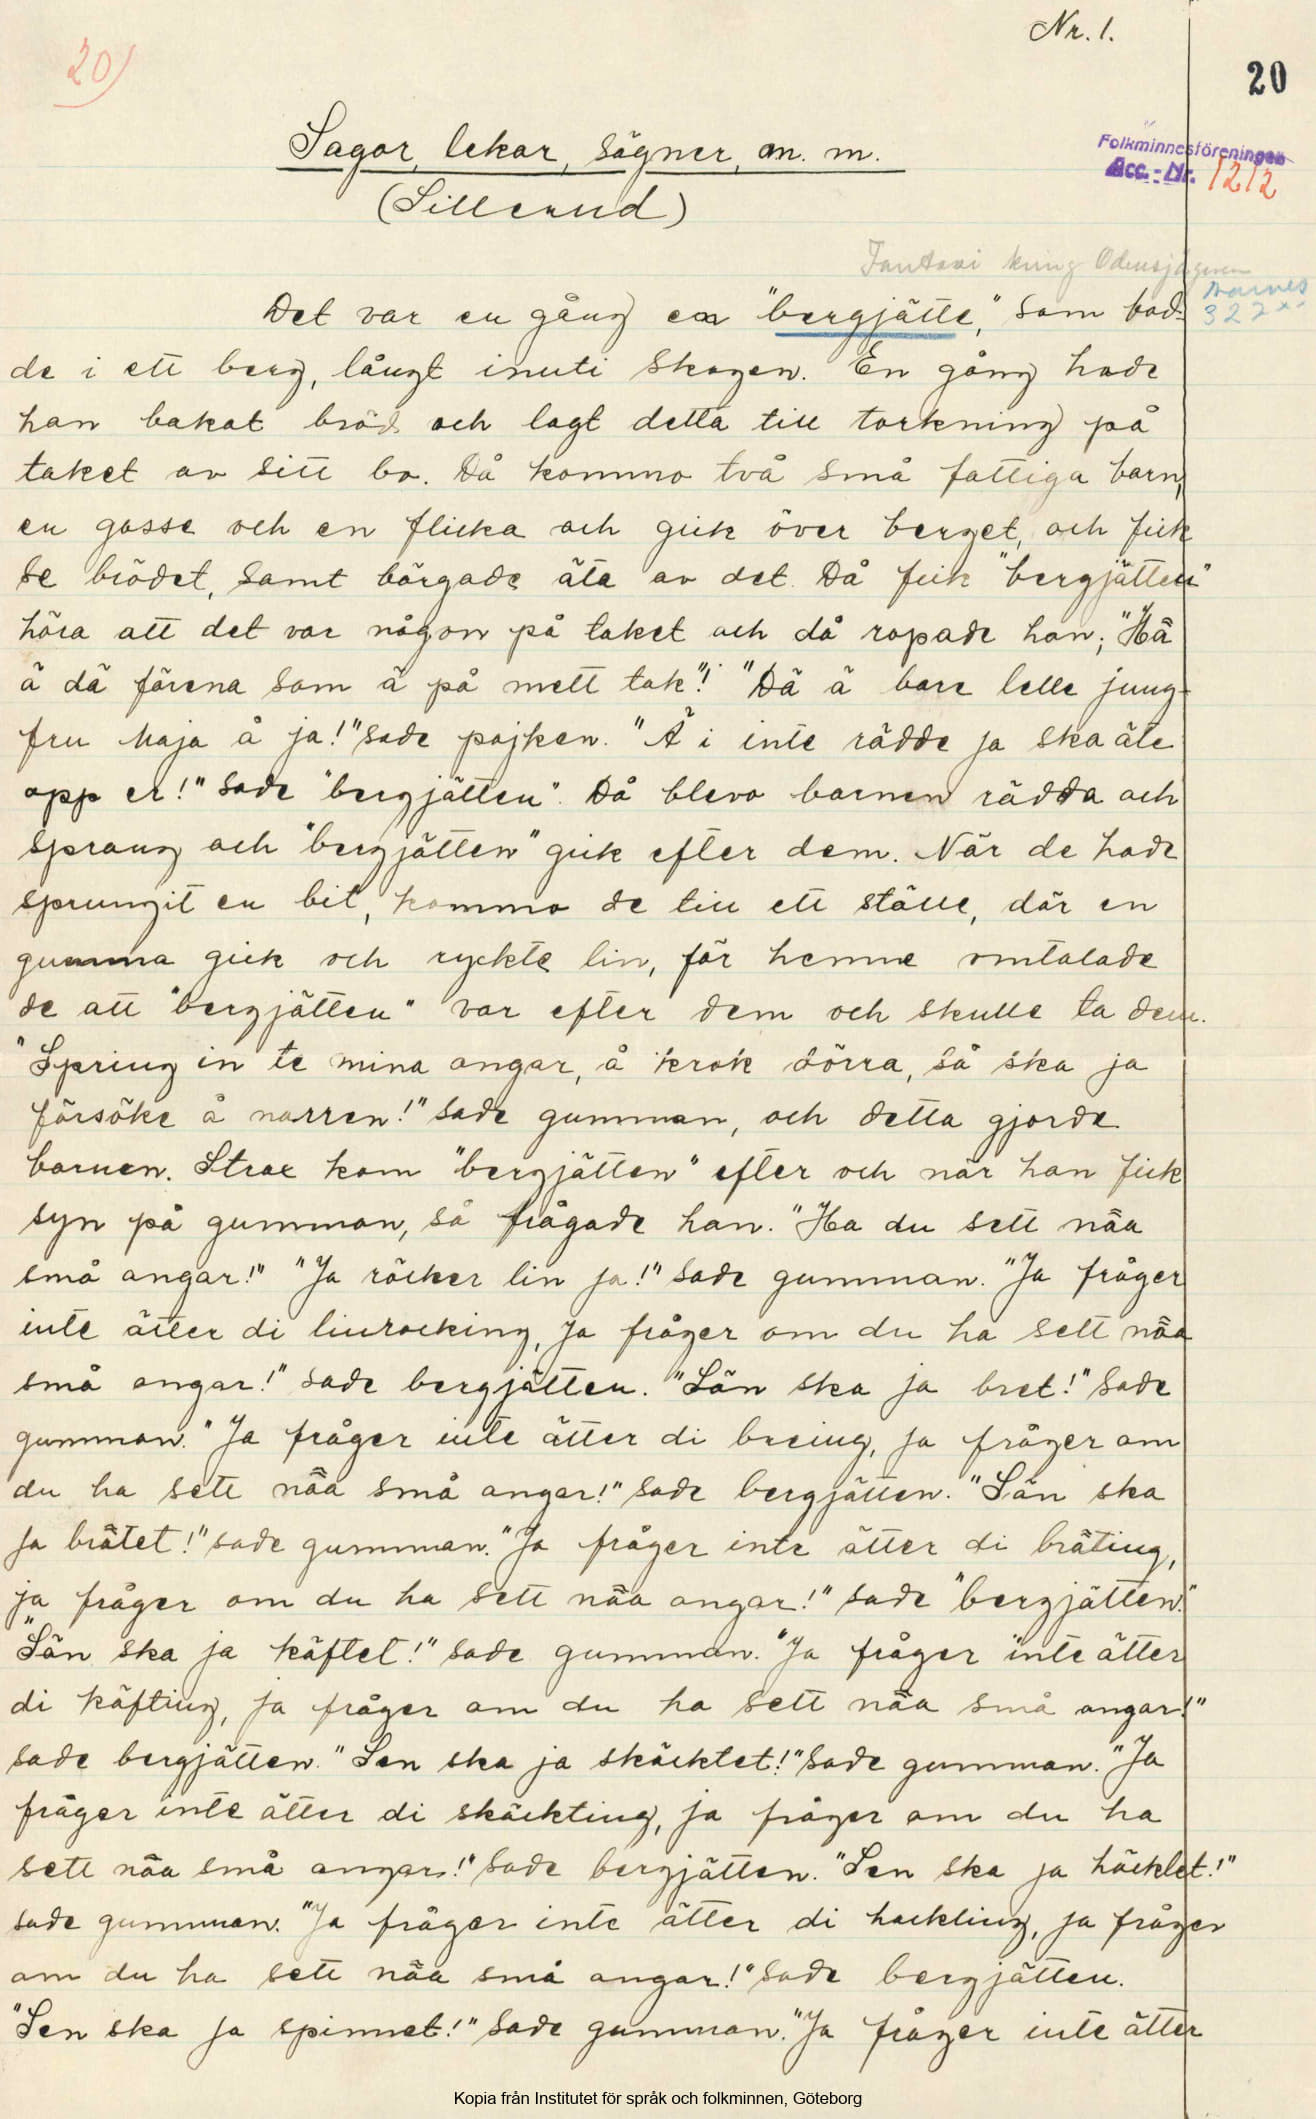 Nr. 1.
20)
20
Sagor, lekar, sägner, m. m.
(Sillerud)
Folkminnesföreningen
Acc.-Nr. 1212
kring Odensjägaren
327
Det var en gång en "bergjätte," som bod-
de i ett berg, långt inuti skogen. En gång hade
han bakat bröd och lagt detta till torkning på
taket av sitt bo. Då kommo två små fattiga barn,
en gosse och en flicka och gick över berget, och fick
se brödet, samt börgade äta av det. Då fick "bergjätten"
höra att det var någon på taket och då ropade han; "Hå
ä dä färena som ä på mett tak"! "Dä ä bare lelle jung-
fru Maja å ja!" sade pojken. "Ä i inte rädde ja ska äte
opp er!" sade "bergjätten". Då blevo barnen rädda och
sprang och "bergjätten" gick efter dem. När de hade
sprungit en bit, kommo de till ett ställe, där en
gumma gick och ryckte lin, för henne omtalade
de att "bergjätten" var efter dem och skulle ta dem.
"Spring in te mina angar, å krok dörra, så ska ja
försöke å narren!" sade gumman, och detta gjorde
barnen. Strax kom "bergjätten" efter och när han fick
syn på gumman, så frågade han. "Ha du sett näa
små angar!" "Ja röcker lin ja!" sade gumman. "Ja fråger
inte ätter di linrocking, ja fråger om du ha sett näa
små angar!" sade bergjätten. "Sän ska ja bret!" sade
gumman. "Ja fråger inte ätter di breing, ja fråger om
du ha sett näa små angar!" sade bergjätten. "Sän ska
ja bråtet!" sade gumman. "Ja fråger inte ätter di bråting,
ja fråger om du ha sett näa angar!" sade "bergjätten."
"Sän ska ja käftet!" sade gumman. "Ja fråger inte ätter
di käfting, ja fråger om du ha sett näa små angar!"
sade bergjätten. "Sen ska ja skäcktet!" sade gumman. "Ja
fråger inte ätter di skäckting, ja fråger om du ha
sett näa små angar!" sade bergjätten. "Sen ska ja häcklet!"
sade gumman. "Ja fråger inte ätter di hackling, ja fråger
om du ha sett näa små angar!" sade bergjätten.
"Sen ska ja spinnet!" sade gumman. "Ja fråger inte ätter
Kopia från Institutet för språk och folkminnen, Göteborg